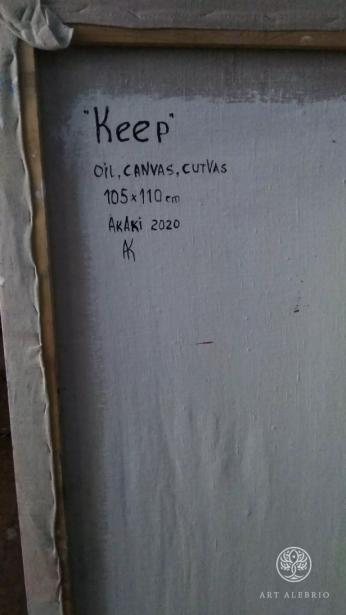 "Keep"
OIL, CANVAS, CUTVAS
105 x 110 cm
AKAKI 2020
AK
ART ALEBRIO